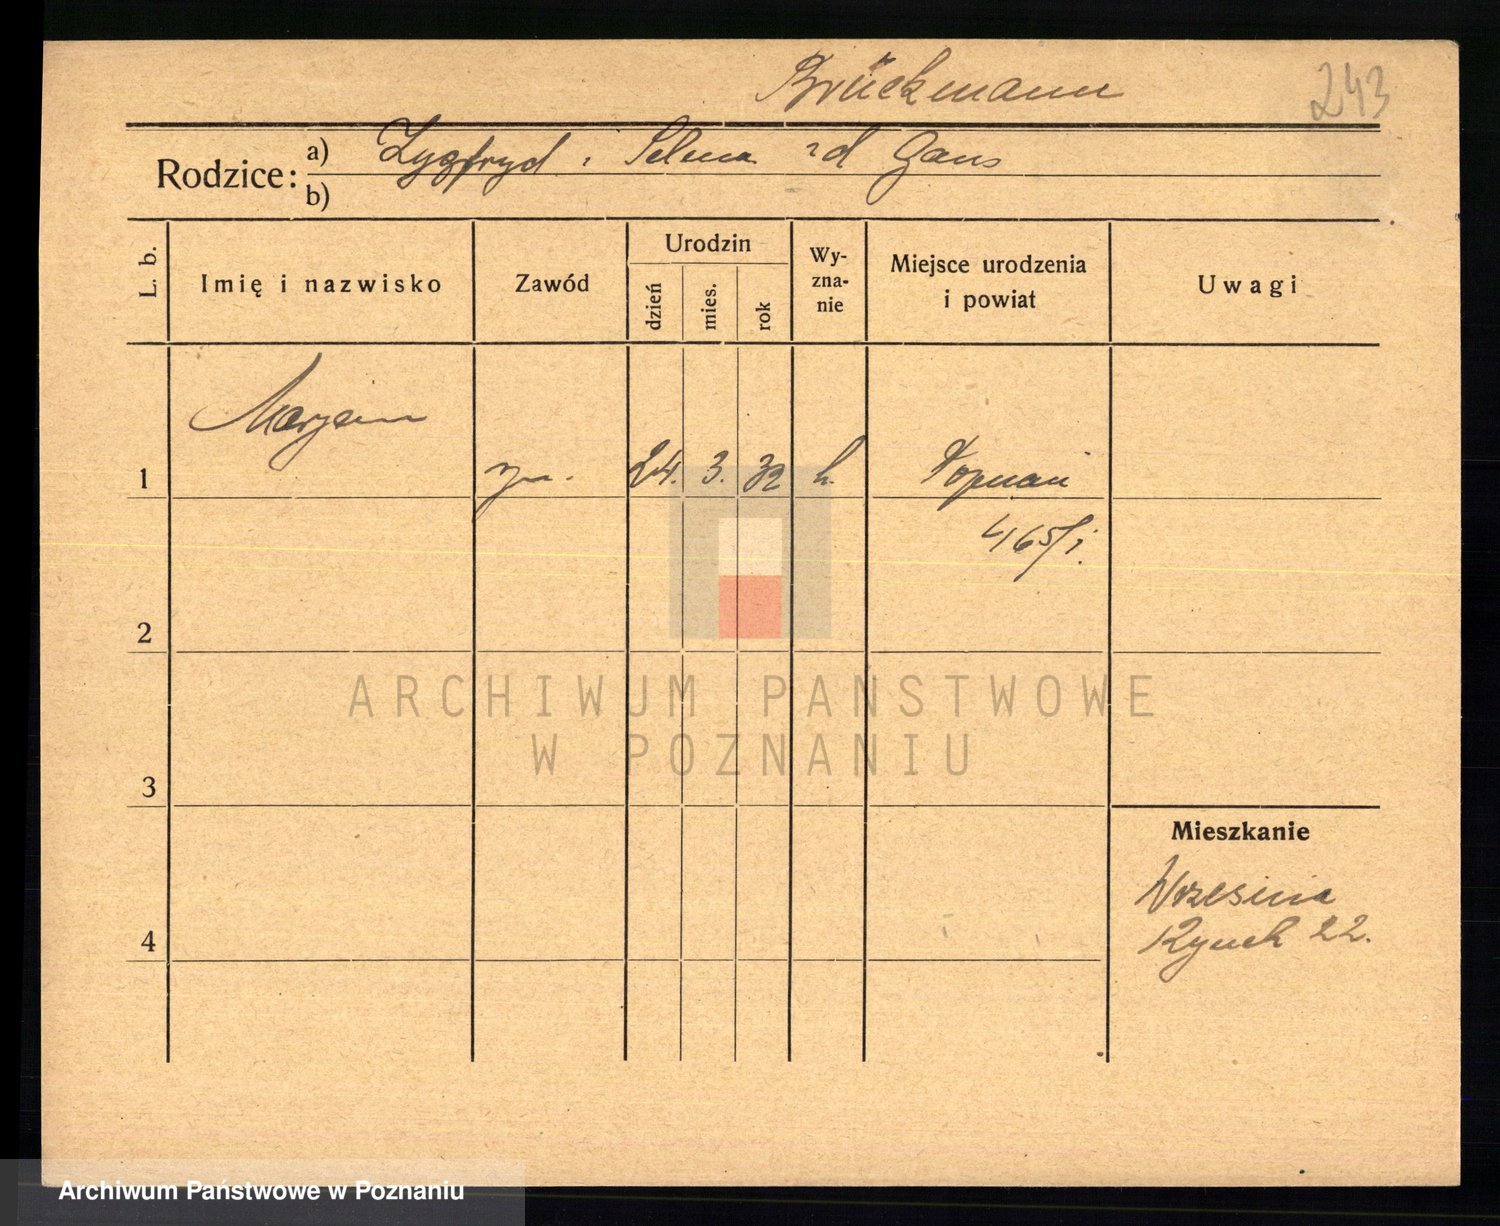 Brückmann
243
Rodzice:
a) Zygfryd i Selma zd Gans
b)
L. b.
Imię i nazwisko
Zawód
Urodzin
dzień
mies.
rok
Wy-
zna-
nie
Miejsce urodzenia
i powiat
Uwagi
Marjan
1
24. 3. 32
Poznań
465/
2
3
4
Mieszkanie
Września
Rynek 22.
ARCHIWUM PAŃSTWOWE
W POZNANIU
Archiwum Państwowe w Poznaniu